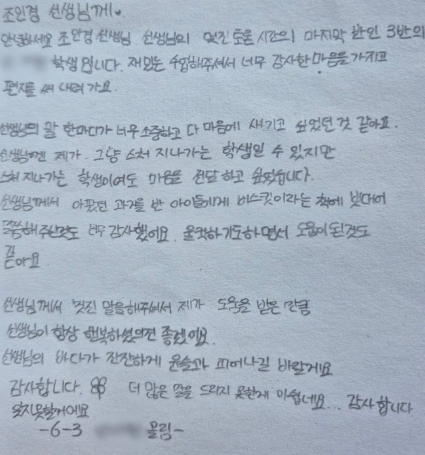 조인경 선생님께♥
안녕하세요 조인경 선생님 선생님의 멋진 토론 시간의 마지막 반인 3반의
학생 입니다. 재밌는 수업해주셔서 너무 감사한 마음을 가지고
편지를 써 내려 가요.
선생님의 말 한마디가 너무 소중하고 다 마음에 새기고 싶었던 것 같아요.
선생님껜 제가 그냥 스쳐 지나가는 학생일 수 있지만
스쳐 지나가는 학생이어도 마음을 전달 하고 싶었습니다.
선생님께서 아팠던 과거를 반 아이들에게 바스킷이라는 책에 빗대어
말해주신것도 너무 감사했어요. 울컥하기도하면서 도움이 된것도
같
아요
선생님께서 멋진 말을해주셔서 제가 도움을 받은 만큼
선생님이 항상 행복하셨으면 좋겠어요.
선생님의 바다가 잔잔하게 윤슬과 피어나길 바랄게요
감사합니다. 더 많은 말을 드리지 못한게 아쉽네요... 감사합니다
잊지못할거에요
-6-3 올림-